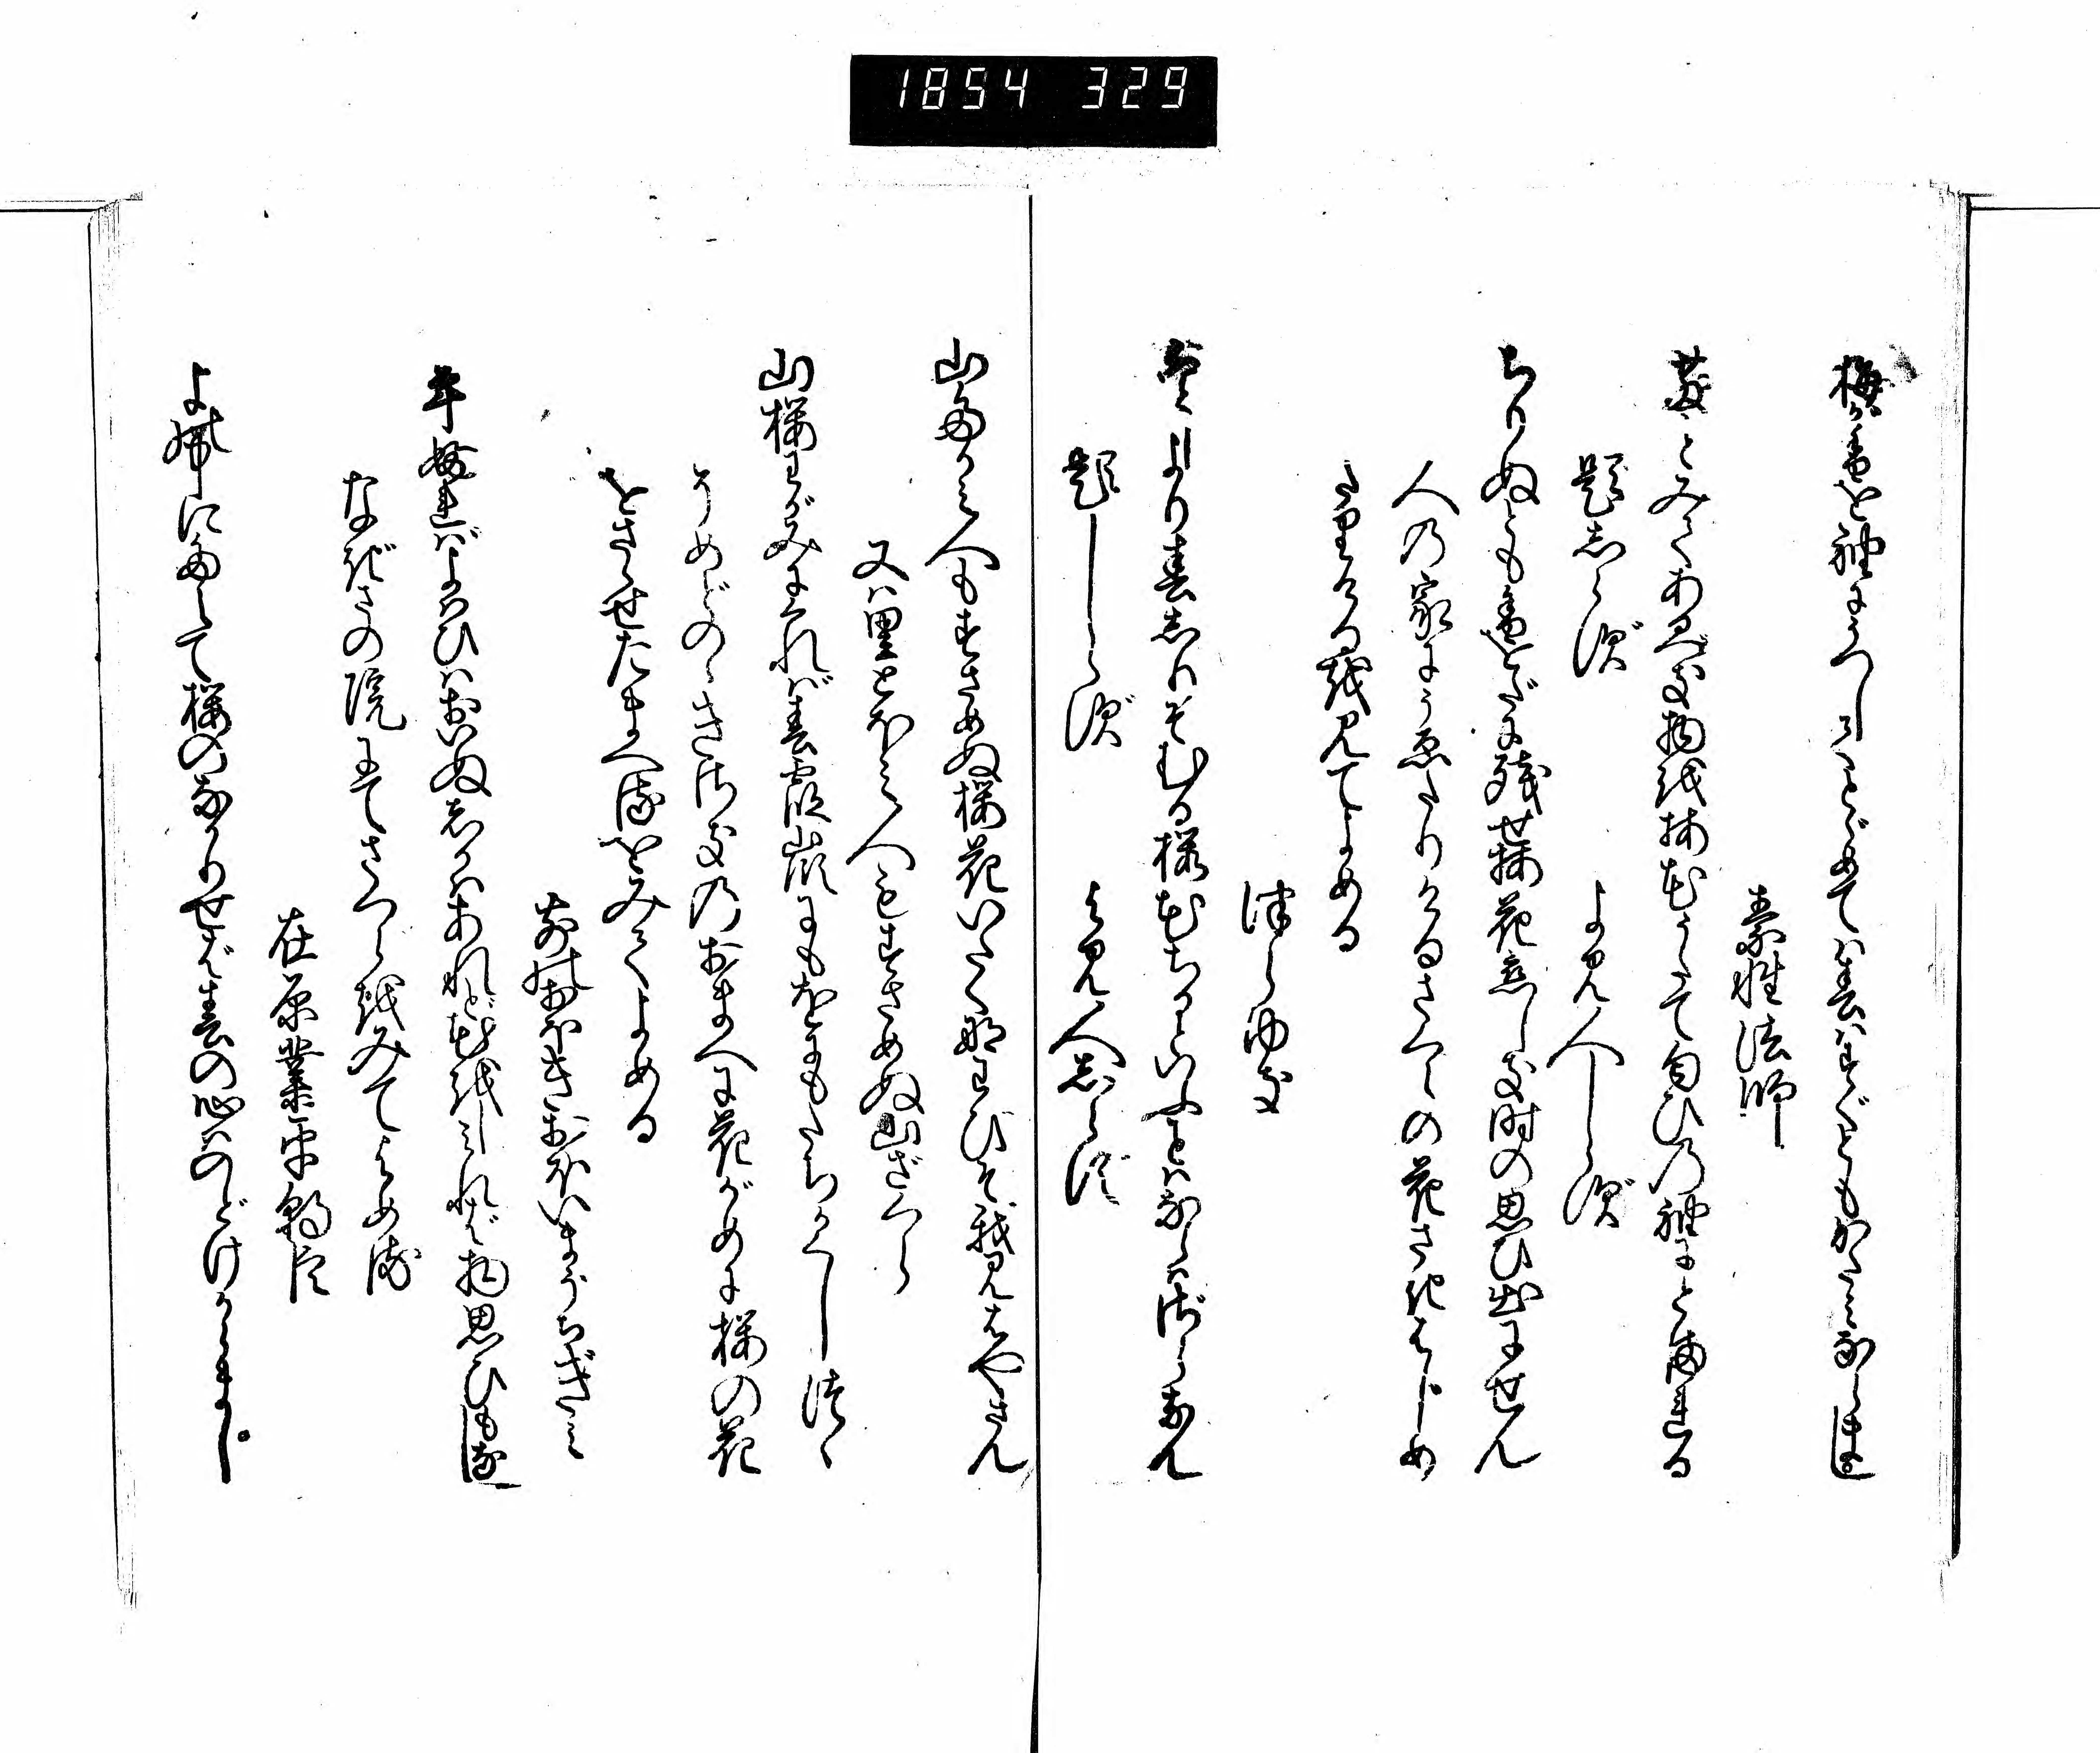 1854 329
梅が香を袖にうつしてとゞめては春はすぐともかたみならまし
素性法師
散とみてあるべき物を梅花うたて匂ひの袖にとまれる
題しらず
よみ人しらず
ちりぬとも香をだに残せ梅花恋しき時の思ひ出にせん
人の家にうゑたりけるさくらの花さきはじめ
たりけるを見てよめる
つらゆき
ことしより春しりそむる桜花ちるといふことはならはざらなん
題しらず
よみ人しらず
山たかみ人もすさめぬ桜花いたくなわびそ我見はやさん
又は里とほみ人もすさめぬ山ざくら
山桜わがみにくれば春霞峯にもをにもたちかくしつゝ
そめどのゝきさきのおまへに花がめに桜の花
をさゝせたまへるをみてよめる
さきのおほきおほいまうちぎみ
年ふればよはひはおいぬしかはあれど花をしみれば物思ひもなし
なぎさの院にてさくらをみてよめる
在原業平朝臣
よの中にたえて桜のなかりせば春の心はのどけからまし